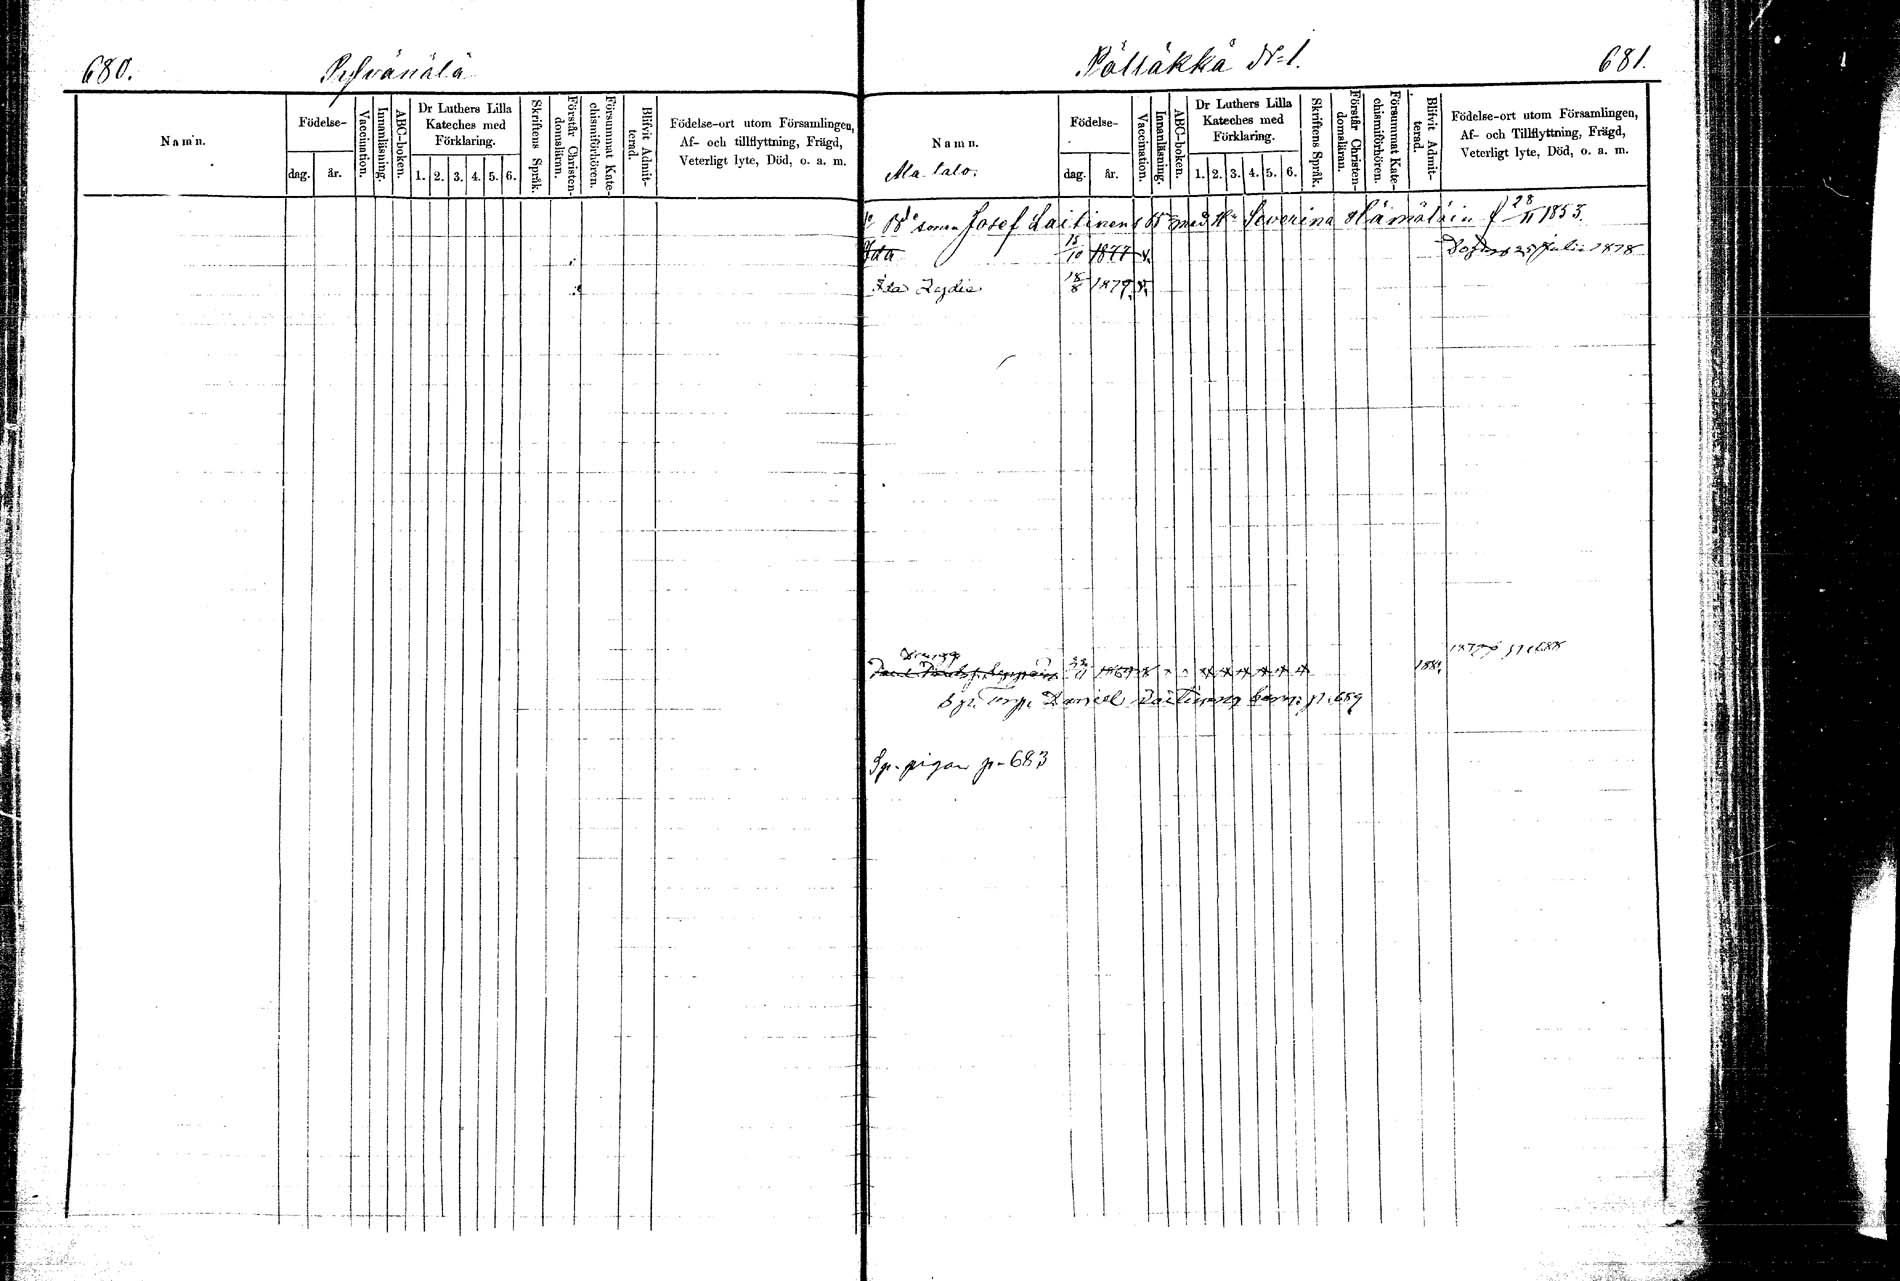 680.
Pylvänälä
Namn.
Födelse-
dag.
år.
Vaccination.
Innanläsning.
ABC-boken.
Dr Luthers Lilla
Kateches med
Förklaring.
1. 2. 3. 4. 5. 6.
Skriftens Språk.
Förstår Christen-
domslärn.
Försummat Kate-
chismiförhören.
Blifvit Admit-
terad.
Födelse-ort utom Församlingen,
Af- och tillflyttning, Frägd,
Veterligt lyte, Död, o. a. m.
Pölläkkä N:1.
681.
Namn.
Ma. talo.
Födelse-
dag.
år.
Vaccination.
Innanläsning.
ABC-boken.
Dr Luthers Lilla
Kateches med
Förklaring.
1. 2. 3. 4. 5. 6.
Skriftens Språk.
Förstår Christen-
domsläran.
Försummat Kate-
chismiförhören.
Blifvit Admit-
terad.
Födelse-ort utom Församlingen,
Af- och Tillflyttning, Frägd,
Veterligt lyte, Död, o. a. m.
sonen Josef Laitinens med H. Severina Hämäläin f 28/11 1853.
Ida 15/10 1877 v. 25 Juli 1878
Ida Lydia 18/8 1879 v.
Dräng
22/11
188
Sp. Torp. Daniel Laitinens barn p. 689
Sp. pigan p. 683